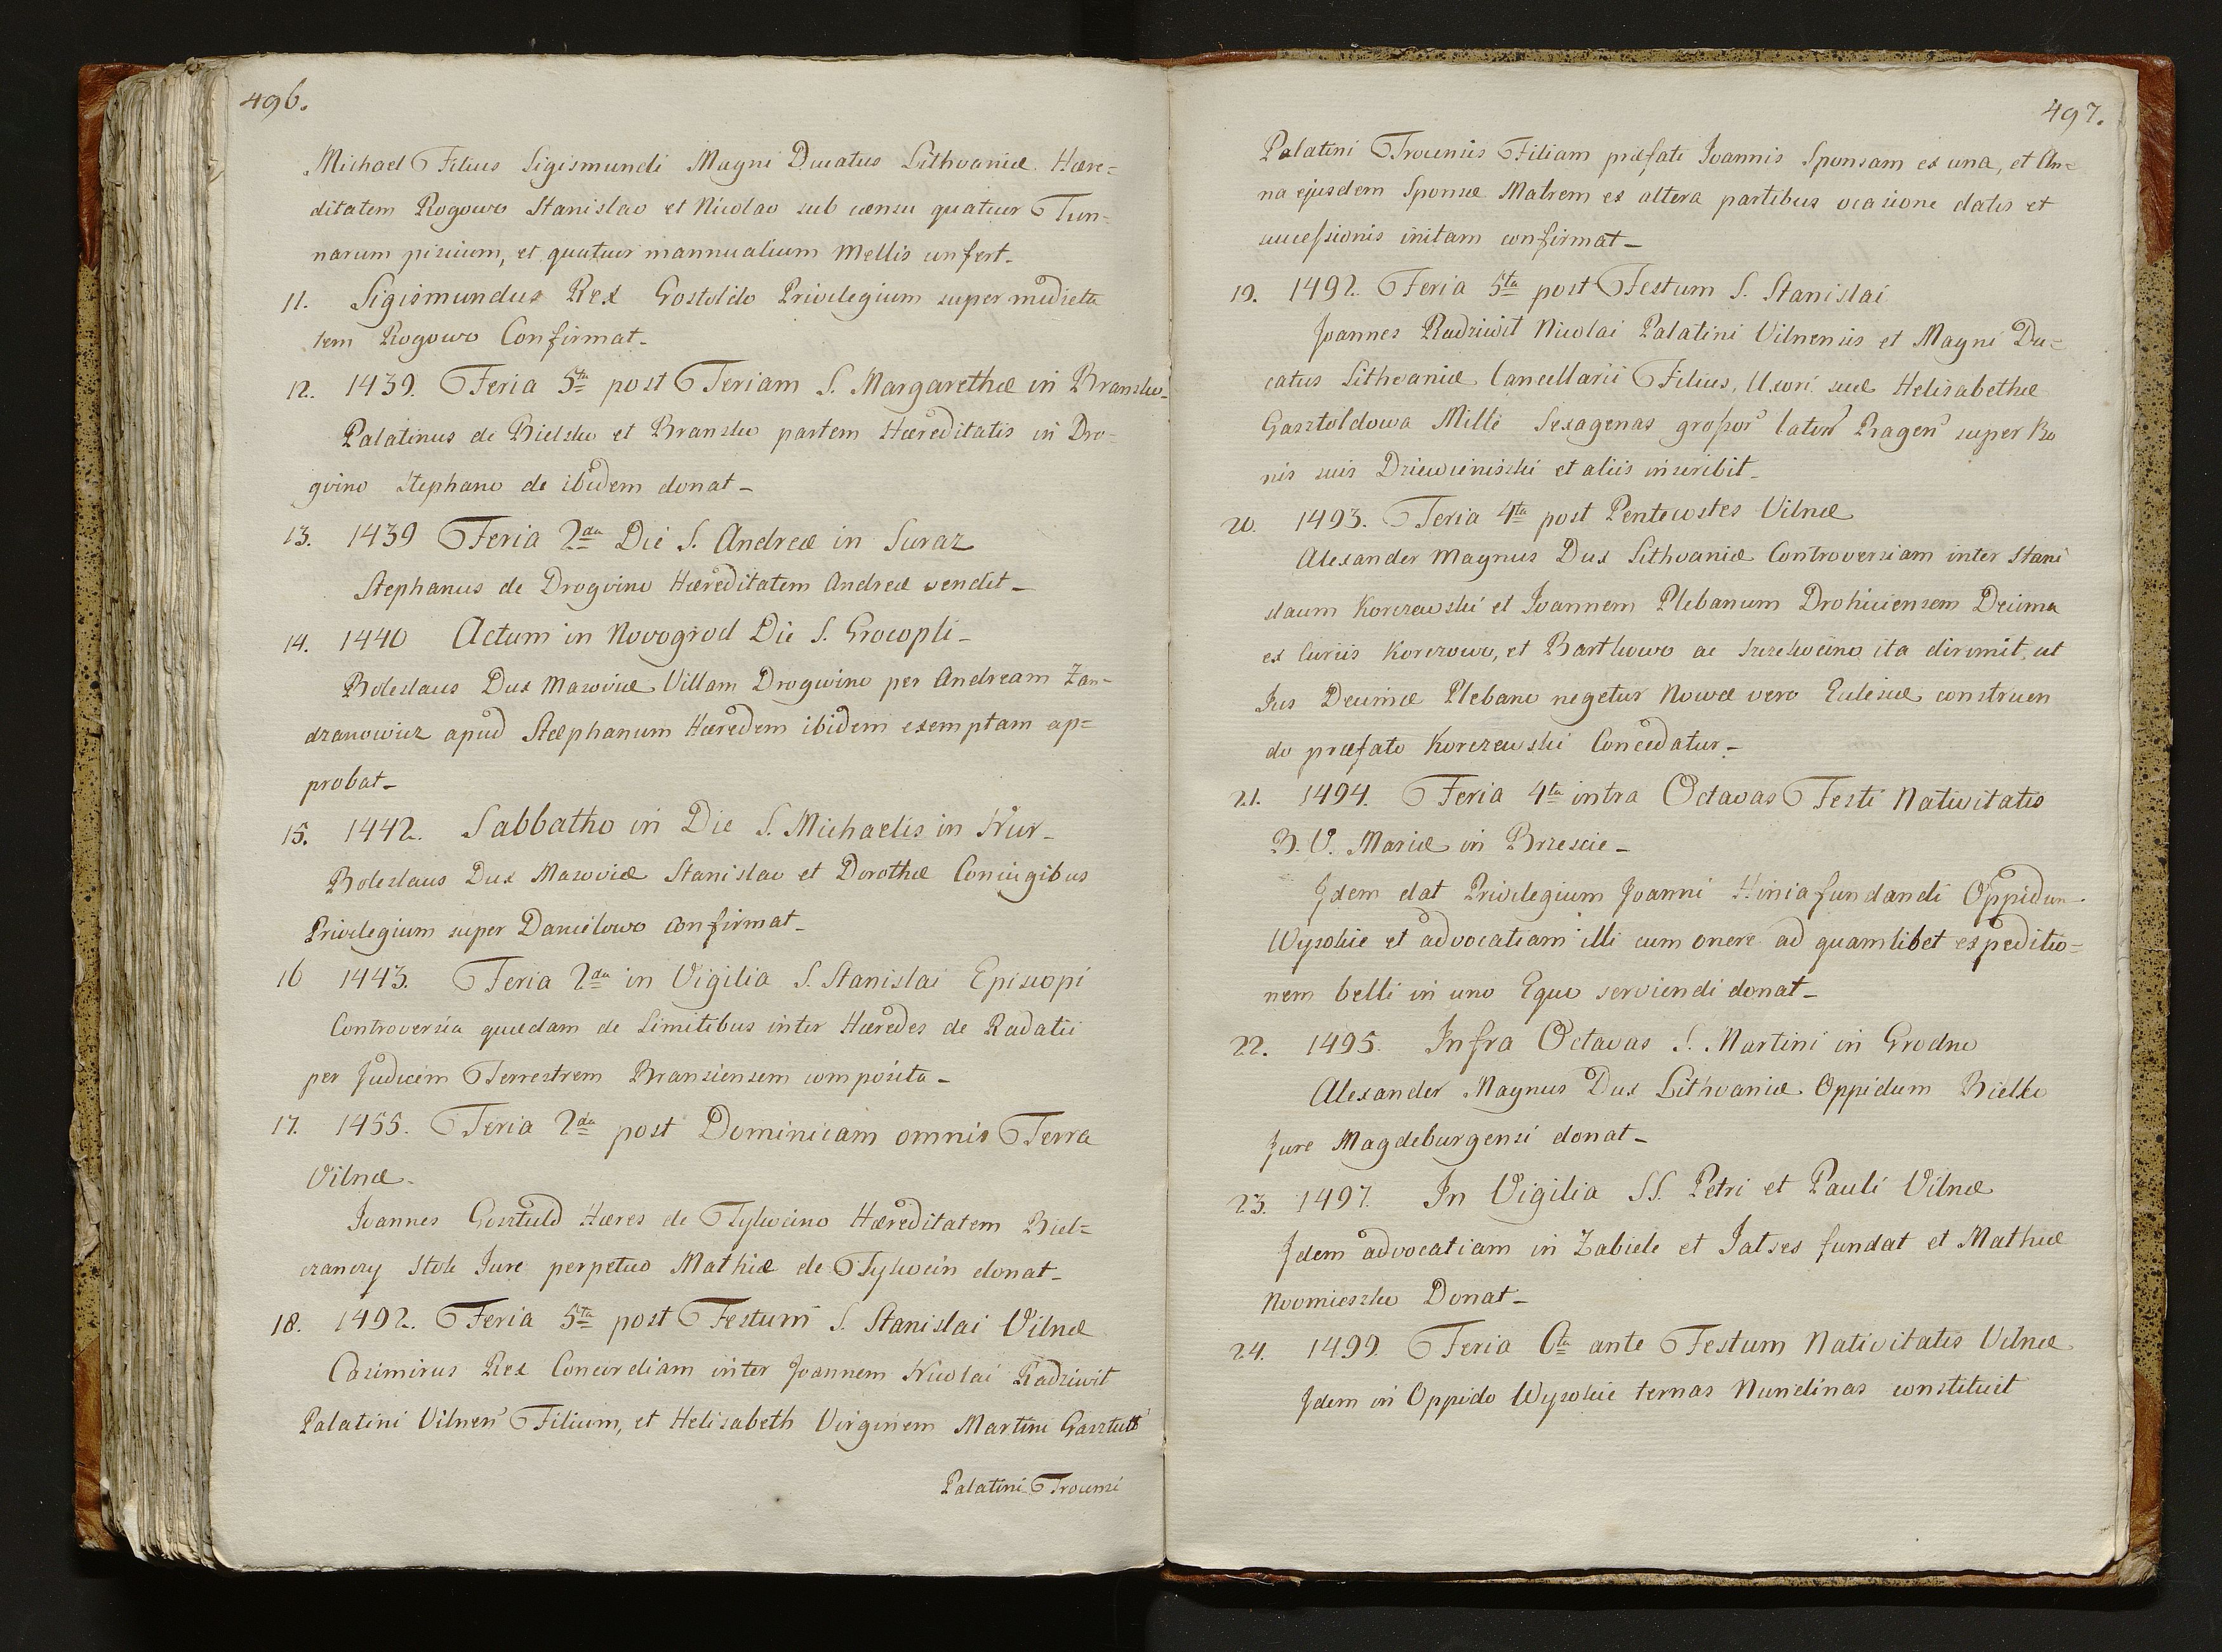 496.
Michael Filius Sigismundi Magni Ducatus Lithvaniæ Hære=
ditatem Rogowo Stanislao et Nicolao sub censu quatuor Tun-
narum piscium, et quatuor mannualium Mellis confert_
11. Sigismundus Rex Gostoldo Privilegium super medieta
tem Rogowo Confirmat_
12. 1439. Feria 5ta post Feriam S. Margarethæ in Bransko_
Palatinus de Bielsko et Bransko partem Hæreditatis in Dro-
gvino Stephano de ibidem donat_
13. 1439 Feria 2da Die S. Andreæ in Suraz
Stephanus de Drogvino Hæreditatem Andreæ vendit_
14. 1440 Actum in Novogrod Die S. Grocopli_
Boleslaus Dux Masoviæ Villam Drogwino per Andream Zan-
dzanowicz apud Stæphanum Hæredem ibidem exemptam ap=
probat_
15. 1442. Sabbatho in Die S. Michaelis in Nur_
Boleslaus Dux Masoviæ Stanislao et Dorothæ Coniugibus
Privilegium super Danielowo confirmat_
16 1443. Feria 2da in Vigilia S. Stanislai Episcopi
Controversia quædam de Limitibus inter Hæredes de Radatii
per Judicem Terrestrem Bransiensem composita_
17. 1455. Feria 2da post Dominicam omnis Terra
Vilnæ_
Joannes Gosztuld Hæres de Tykocino Hæreditatem Biel=
czanczy Stok Jure perpetuo Mathiæ de Tykocin donat_
18. 1492. Feria 5ta post Festum S. Stanislai Vilnæ
Casimirus Rex Concordiam inter Joannem Nicolai Radziwit
Palatini Vilnen Filium, et Helisabeth Virginem Martini Gasztutt
Palatini Trocensi
497.
Palatini Trocensis Filiam præfati Joannis Sponsam ex una, et An=
na ejusdem Sponsæ Matrem ex altera partibus ocasione datis et
successionis initam confirmat_
19. 1492. Feria 5ta post Festum S. Stanislai
Joannes Radziwit Nicolai Palatini Vilnensis et Magni Du=
catus Lithvaniæ Cancellarii Filius, Uxori suæ Helisabethæ
Gasztoldowa Mille Sexagenas grossor lator Pragen super Bo
nis suis Dziewieniszki et aliis inscribit_
20. 1493. Feria 4ta post Pentecostes Vilnæ
Alexander Magnus Dux Lithvaniæ Controversiam inter Stani
slaum Korczewski et Joannem Plebanum Drohiciensem Decima
ex Curiis Korczowo, et Bartkowo ac Szczekocino ita dirimit, ut
Jus Decimæ Plebano negetur Nowæ vero Eclesiæ construen
do præfato Korczewski Concedatur_
21. 1494. Feria 4ta intra Octavas Festi Nativitatis
B. V. Mariæ in Brzescie_
Jdem dat Privilegium Joanni Hinia fundandi Oppidum
Wysokie et advocatiam illi cum onere ad quamlibet expeditio=
nem belli in uno Equo serviendi donat_
22. 1495. Infra Octavas S. Martini in Grodno
Alexander Magnus Dux Lithvaniæ Oppidum Bielsko
Jure Magdeburgensi donat_
23. 1497. In Vigilia SS. Petri et Pauli Vilnæ
Jdem advocatiam in Zabiele et Jatses fundat et Mathiæ
Noomieszko Donat_
24. 1499. Feria 6ta ante Festum Nativitatis Vilnæ
Jdem in Oppido Wysokie ternas Nundinas constituit